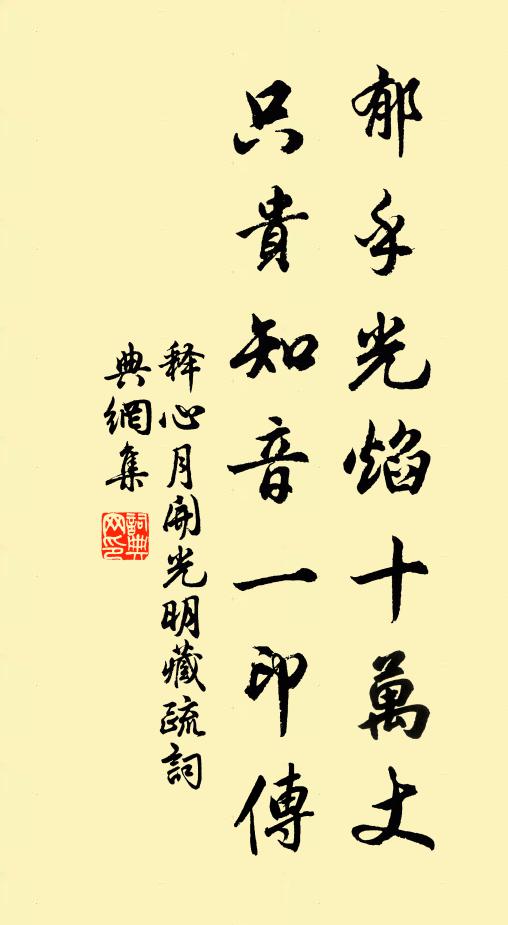 郁乎光焰十萬丈
只貴知音一印傳
释心月開光明藏疏詞
典網集
詞典网印